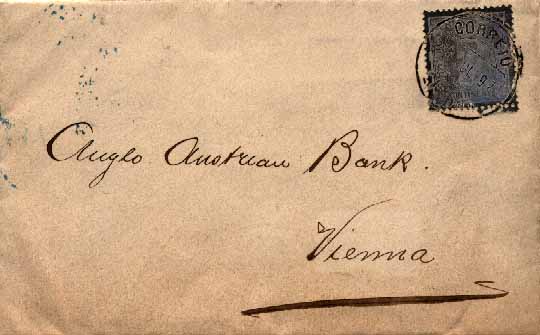 CORREIO
Anglo Austrian Bank.
Vienna